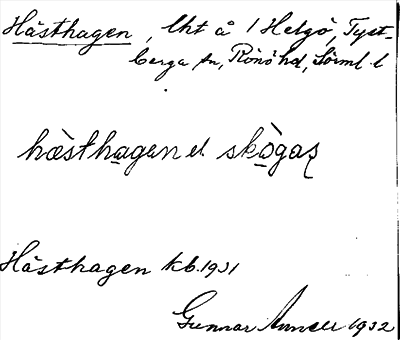 Hästhagen, lht å 1 Helgö, Tyst-
berga sn, Rönö hd, Sörml. l
hæsthagen el. skògaʒ
Hästhagen kb. 1931
Gunnar 1932